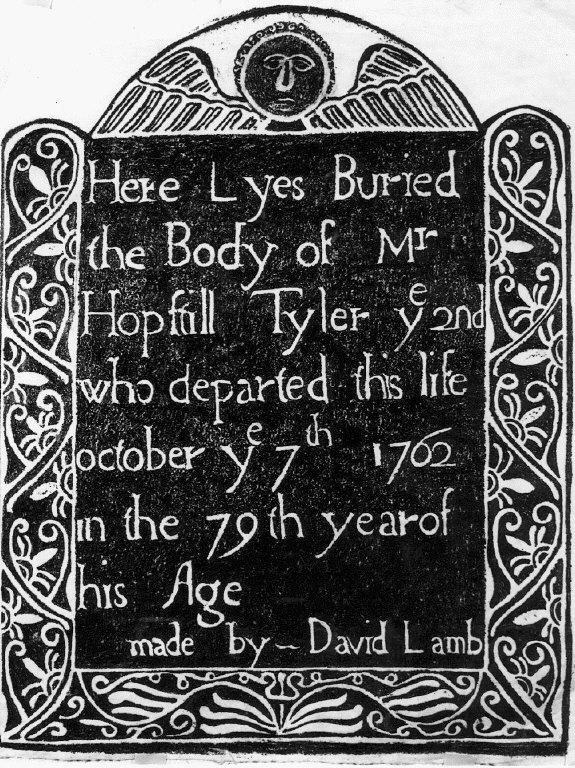 Here Lyes Buried
the Body of Mr
Hopftill Tyler ye 2nd
who departed this life
october ye 7th 1762
in the 79th year of
his Age
made by - David Lamb